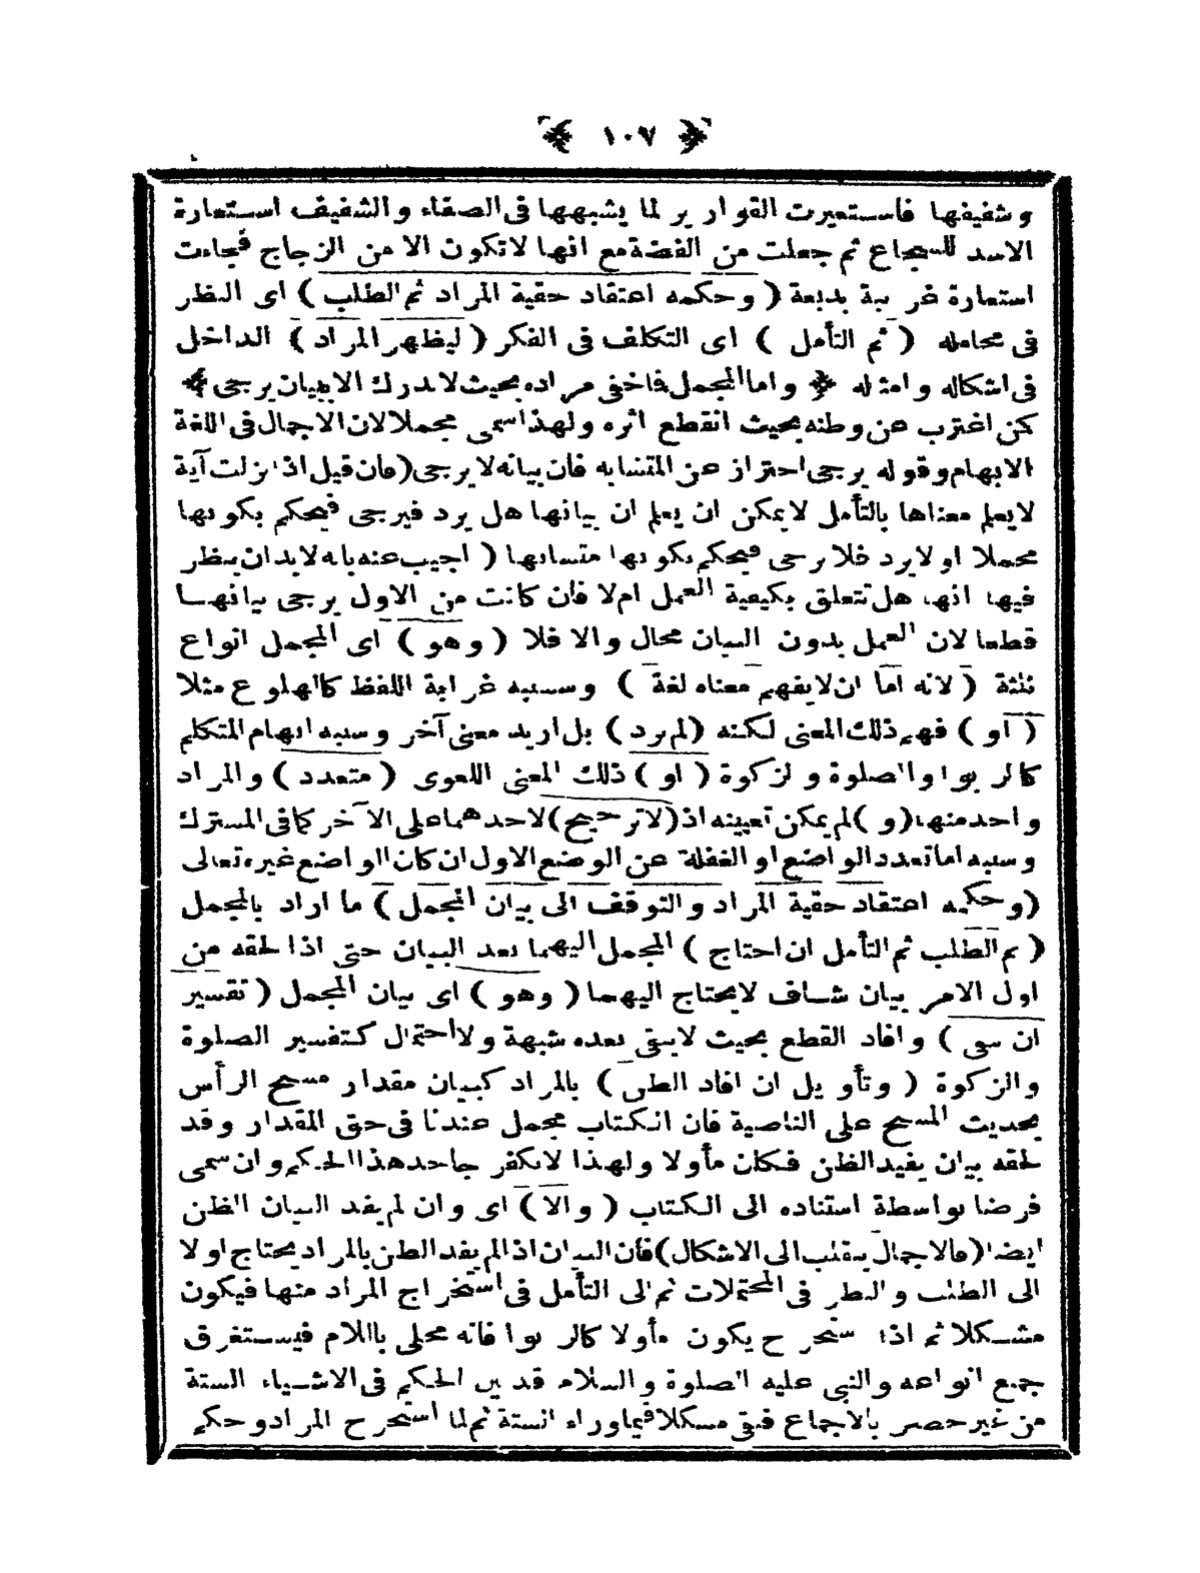 ١٠٧
وشفيفها فاستعيرت القوارير لما يشبهها فى الصفاء والشفيف استعارة
الاسد للشجاع ثم جعلت من الفضة مع انها لاتكون الا من الزجاج فجاءت
استعارة غريبة بديعة ( وحكمه اعتقاد حقية المراد ثم الطلب ) اى النظر
فى محامله ( ثم التأمل ) اى التكلف فى الفكر ( ليظهر المراد ) الداخل
فى اشكاله وامثاله ﴿ واما المجمل فاخفى مراده بحيث لايدرك الا ببيان يرجى ﴾
كمن اغترب عن وطنه بحيث انقطع اثره ولهذا سمى مجملا لان الاجمال فى اللغة
الابهام وقوله يرجى احتراز عن المتشابه فان بيانه لا يرجى ( فان قيل اذا نزلت آية
لايعلم معناها بالتأمل لايمكن ان يعلم ان بيانها هل يرد فيرجى فيحكم بكونها
مجملا اولايرد فلا يرجى فيحكم بكونها متشابها ( اجيب عنه بانه لابد ان ينظر
فيها انها هل تتعلق بكيفية العمل ام لا فان كانت من الاول يرجى بيانهـا
قطعا لان العمل بدون البيان محال والا فلا ( وهو ) اى المجمل انواع
ثلثة ( لانه اما ان لايفهم معناه لغة ) وسببه غرابة اللفظ كالهلوع مثلا
( او ) فهم ذلك المعنى لكنه ( لم يرد ) بل اريد معنى آخر وسببه ابهام المتكلم
كالربوا والصلوة والزكوة ( او ) ذلك المعنى اللغوى ( متعدد ) والمراد
واحد منها ( و ) لم يمكن تعيينه اذ ( لا ترجيح ) لاحدهما على الآخر كما فى المشترك
وسببه اما تعدد الواضع او الغفلة عن الوضع الاول ان كان الواضع غيره تعالى
( وحكمه اعتقاد حقية المراد والتوقف الى بيان المجمل ) ما اراد بالمجمل
( ثم الطلب ثم التأمل ان احتاج ) المجمل اليهما بعد البيان حتى اذا لحقه من
اول الامر بيان شاف لايحتاج اليهما ( وهو ) اى بيان المجمل ( تفسير
ان شفى ) وافاد القطع بحيث لايبقى بعده شبهة ولا احتمال كتفسير الصلوة
والزكوة ( وتأويل ان افاد الظن ) بالمراد كبيان مقدار مسح الرأس
بحديث المسح على الناصية فان الكتاب مجمل عندنا فى حق المقدار وقد
لحقه بيان يفيد الظن فكان مأولا ولهذا لايكفر جاحد هذا الحكم وان سمى
فرضا بواسطة استناده الى الكتاب ( والا ) اى وان لم يفد البيان الظن
ايضا ( فالاجمال ينقلب الى الاشكال ) فان البيان اذا لم يفد الظن بالمراد يحتاج اولا
الى الطلب والنظر فى المحتملات ثم الى التأمل فى استخراج المراد منها فيكون
مشكلا ثم اذا استخرج يكون مأولا كالربوا فانه محلى باللام فيستغرق
جميع انواعه والنبى عليه الصلوة والسلام قد بين الحكم فى الاشياء الستة
من غير حصر بالاجماع فبقى مشكلا فيما وراء الستة ثم لما استخرج المراد وحكم